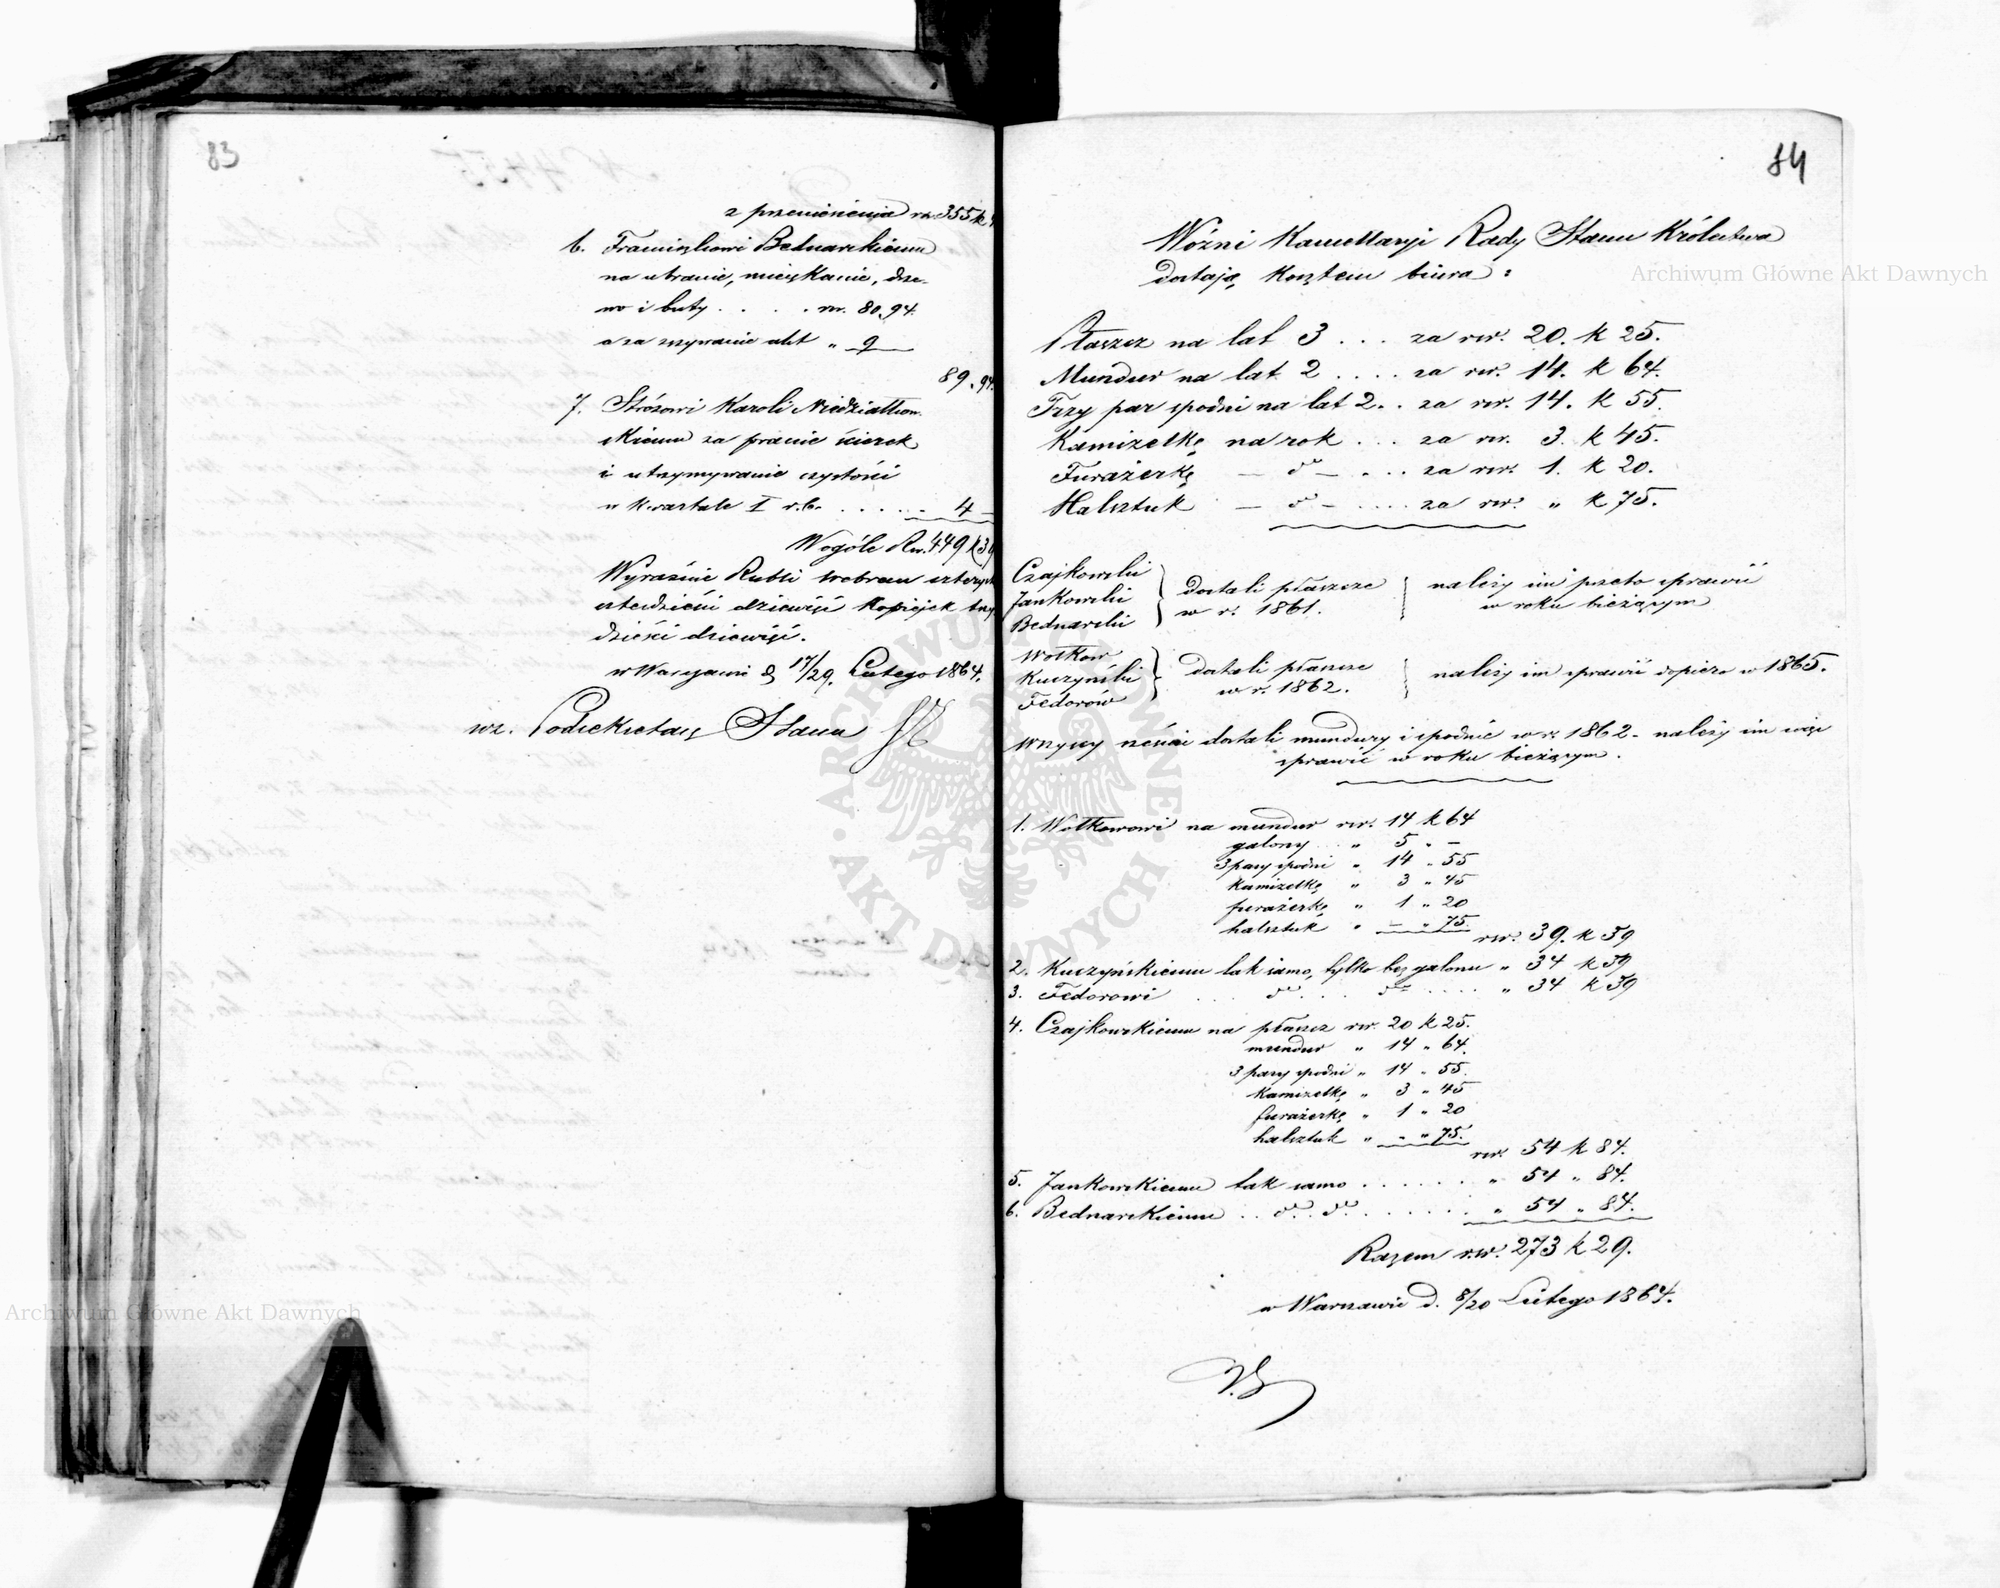 83
z przeniesienia rs. 355 k
6. Franciszkowi Bednarskiemu
na ubranie, mieszkanie, drze-
wo i buty . . . . rsr. 80.94.
a za zszywanie akt „ 9 —
89.94.
7. Stróżowi Karoli Niedziałkow-
skiemu za pranie ścierek
i utrzymywanie czystości
w kwartale I r.b. . . . . . 4 —
Wogóle Rsr. 449 k 39
Wyraźnie Rubli srebrem czterysta
czterdzieści dziewięć kopiejek trzy-
dzieści dziewięć.
w Warszawie d. 17/29. Lutego 1864.
wz. Podsekretarz Stanu
84
Woźni Kancellaryi Rady Stanu Królestwa
dostają kosztem biura:
Płaszcz na lat 3 . . . za rsr. 20. k 25.
Mundur na lat 2 . . . . za rsr. 14. k 64.
Trzy par spodni na lat 2. . za rsr. 14. k 55.
Kamizelkę na rok . . . za rsr. 3. k 45.
Furażerkę — do — . . . za rsr. 1. k 20.
Halsztuk — do — . . . . za rsr. „ k 75.
Czajkowski
Jankowski
Bednarski
dostali płaszcze
w r. 1861.
należy im przeto sprawić
w roku bieżącym
Wołkow
Kuczyński
Fedorów
dostali płaszcze
w r. 1862.
należy im sprawić dopiero w 1865.
Wszyscy sześciu dostali mundury i spodnie w r. 1862 - należy im więc
sprawić w roku bieżącym.
1. Wołkowowi na mundur rsr. 14 k 64
galony „ 5 „ —
3 pary spodni „ 14 „ 55
kamizelkę „ 3 „ 45
furażerkę „ 1 „ 20
halsztuk „ — „ 75.
rsr. 39. k 59
2. Kuczyńskiemu tak samo, tylko bez galonu „ 34 k 59
3. Fedorowi . . . do . . . do . . . . „ 34 k 59
4. Czajkowskiemu na płaszcz rsr. 20 k 25.
mundur „ 14 „ 64.
3 pary spodni „ 14 „ 55.
kamizelkę „ 3 „ 45
furażerkę „ 1 „ 20
halsztuk „ - „ 75.
rsr. 54 k 84.
5. Jankowskiemu tak samo . . . . . . „ 54 „ 84.
6. Bednarskiemu . . do . do . . . . . . „ 54 „ 84.
Razem rsr. 273 k 29.
w Warszawie d. 8/20 Lutego 1864.
Archiwum Główne Akt Dawnych
Archiwum Główne Akt Dawnych
ARCHIWUM GŁÓWNE AKT DAWNYCH